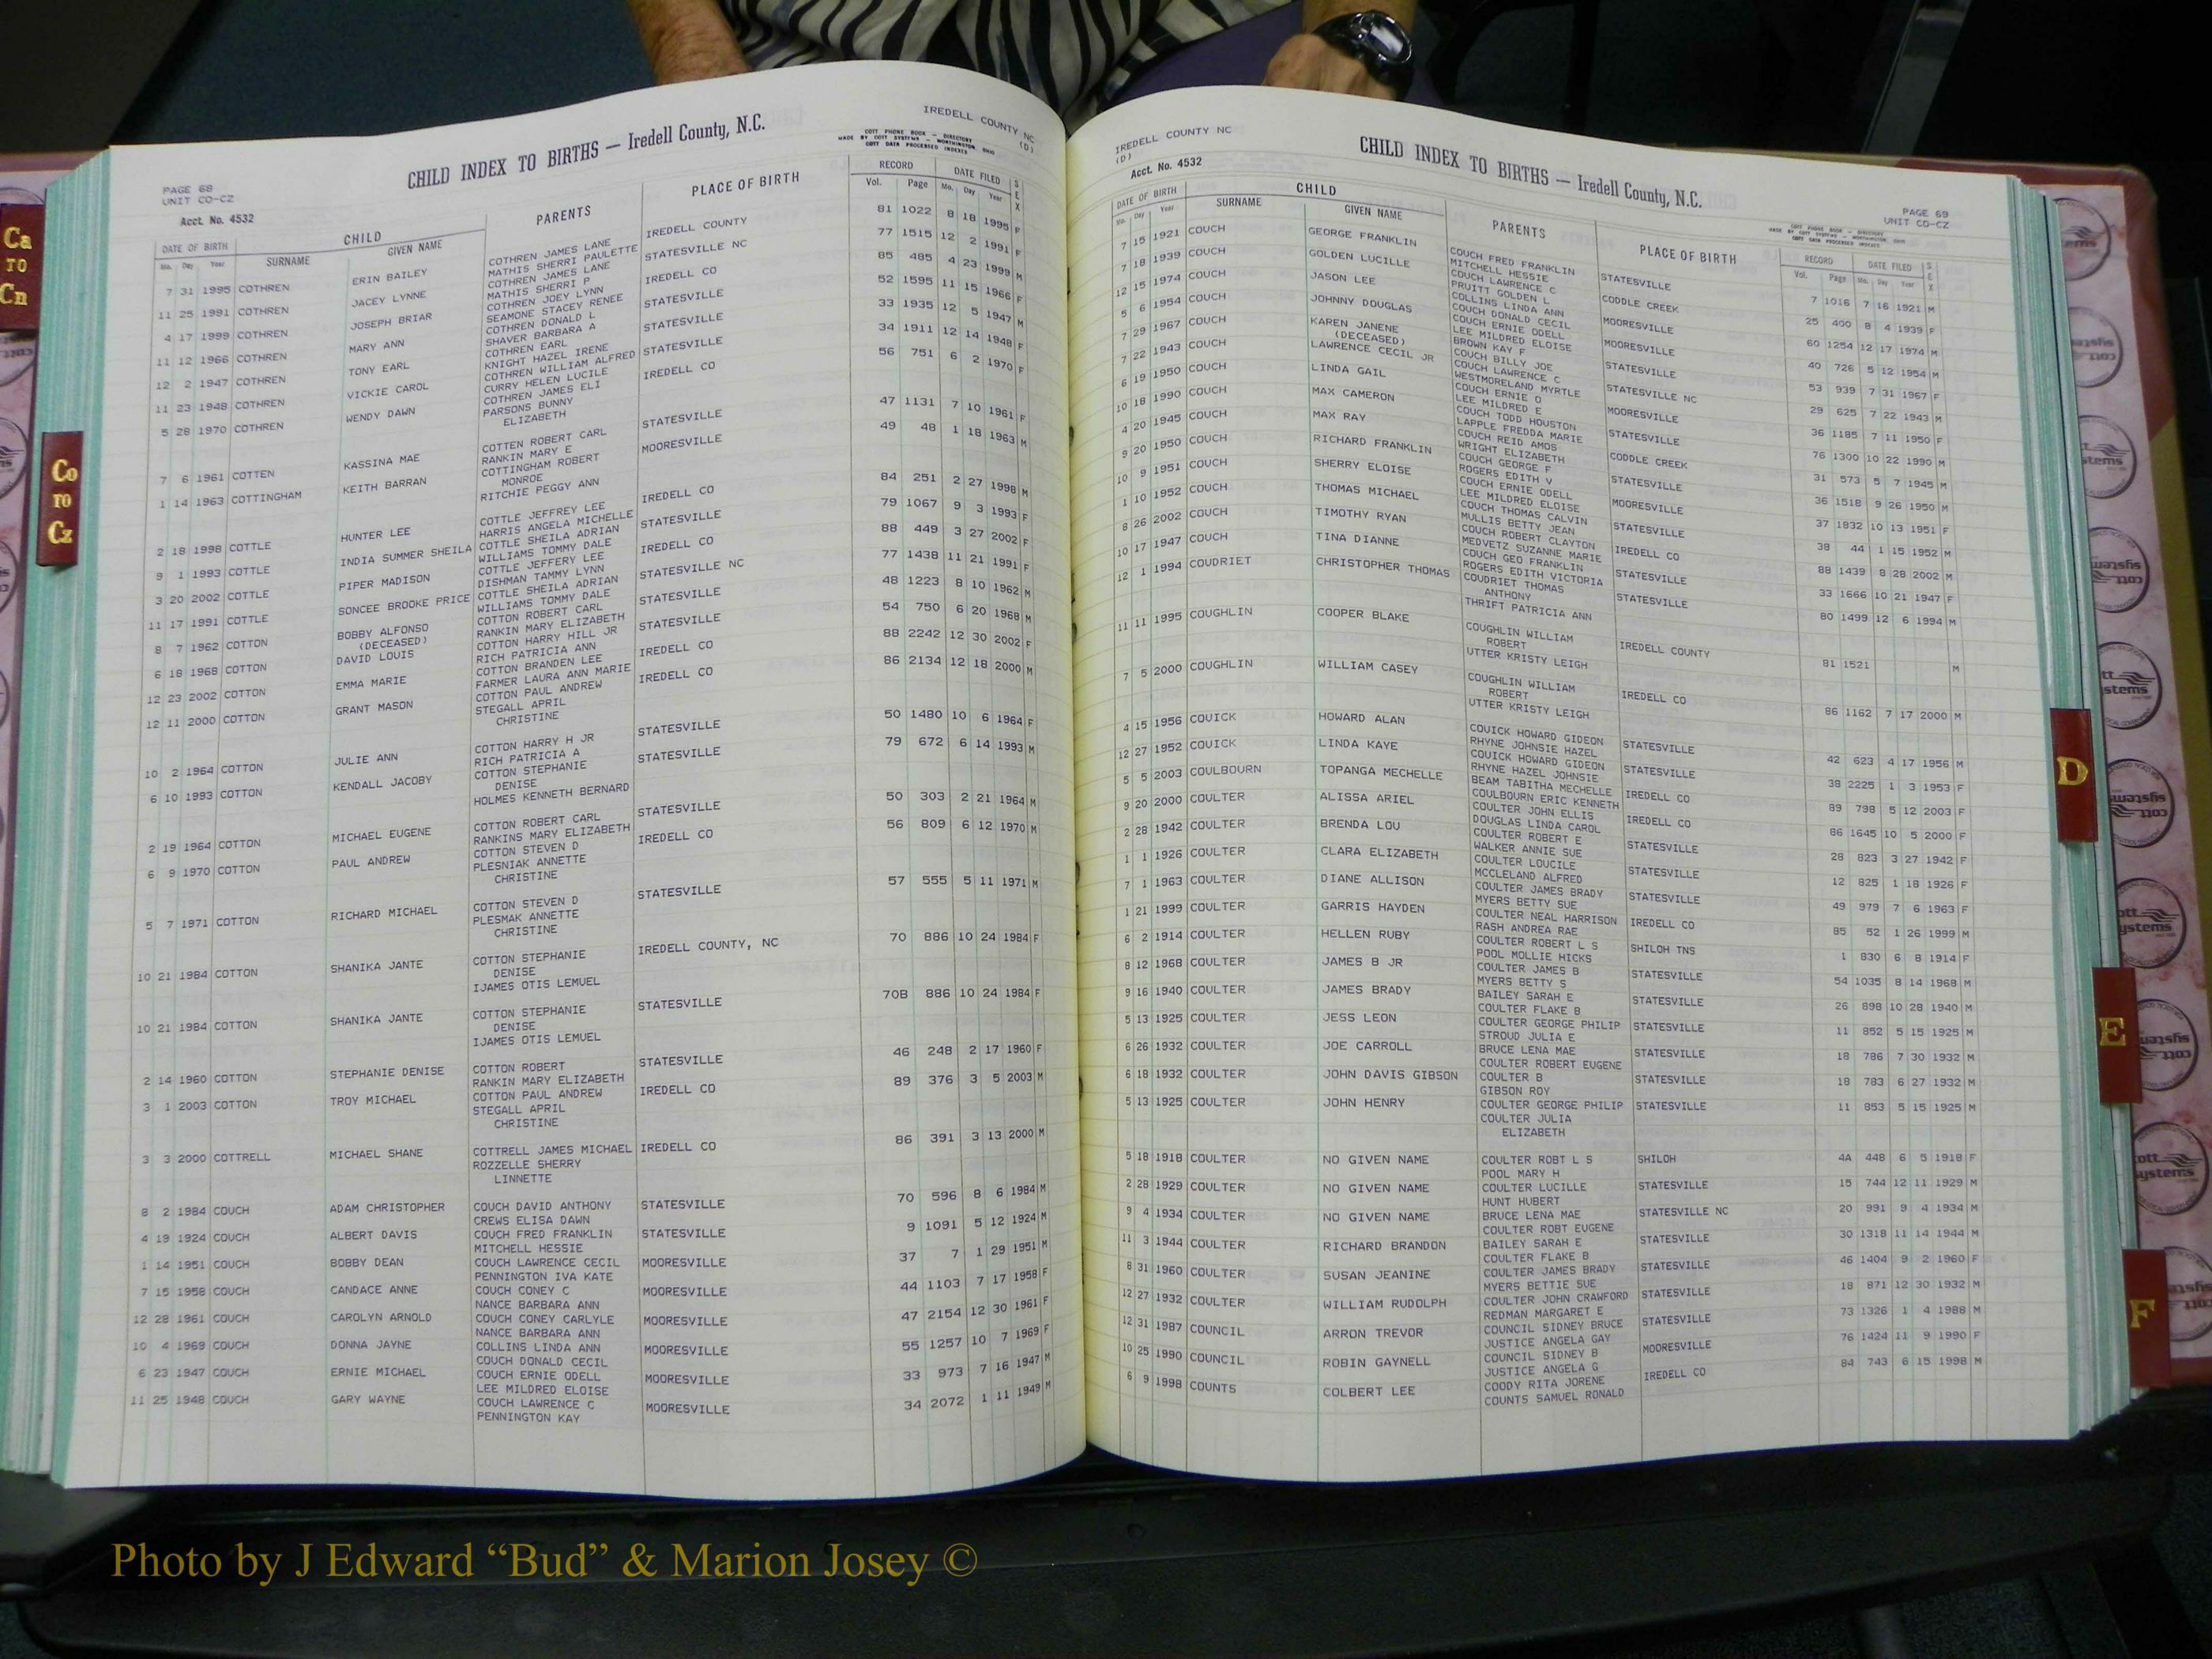 IREDELL COUNTY NC
(D)
CHILD INDEX TO BIRTHS — Iredell County, N.C.
COTT PHONE BOOK — DIRECTORY
MADE BY COTT SYSTEMS — WORTHINGTON, OHIO
COTT DATA PROCESSED INDEXES
PAGE 68
UNIT CO-CZ
Acct. No. 4532
DATE OF BIRTH CHILD PARENTS PLACE OF BIRTH RECORD DATE FILED SEX
Mo. Day Year SURNAME GIVEN NAME Vol. Page Mo. Day Year
7 31 1995 COTHREN ERIN BAILEY COTHREN JAMES LANE IREDELL COUNTY 81 1022 8 18 1995 F
MATHIS SHERRI PAULETTE
11 25 1991 COTHREN JACEY LYNNE COTHREN JAMES LANE STATESVILLE NC 77 1515 12 2 1991 F
MATHIS SHERRI P
4 17 1999 COTHREN JOSEPH BRIAR COTHREN JOEY LYNN IREDELL CO 85 485 4 23 1999 M
SEAMONE STACEY RENEE
11 12 1966 COTHREN MARY ANN COTHREN DONALD L STATESVILLE 52 1595 11 15 1966 F
SHAVER BARBARA A
12 2 1947 COTHREN TONY EARL COTHREN EARL STATESVILLE 33 1935 12 5 1947 M
KNIGHT HAZEL IRENE
11 23 1948 COTHREN VICKIE CAROL COTHREN WILLIAM ALFRED STATESVILLE 34 1911 12 14 1948 F
CURRY HELEN LUCILE
5 28 1970 COTHREN WENDY DAWN COTHREN JAMES ELI IREDELL CO 56 751 6 2 1970 F
PARSONS BUNNY
ELIZABETH
7 6 1961 COTTEN KASSINA MAE COTTEN ROBERT CARL STATESVILLE 47 1131 7 10 1961 F
RANKIN MARY E
1 14 1963 COTTINGHAM KEITH BARRAN COTTINGHAM ROBERT MOORESVILLE 49 48 1 18 1963 M
MONROE
RITCHIE PEGGY ANN
2 18 1998 COTTLE HUNTER LEE COTTLE JEFFREY LEE IREDELL CO 84 251 2 27 1998 M
HARRIS ANGELA MICHELLE
9 1 1993 COTTLE INDIA SUMMER SHEILA COTTLE SHEILA ADRIAN STATESVILLE 79 1067 9 3 1993 F
WILLIAMS TOMMY DALE
3 20 2002 COTTLE PIPER MADISON COTTLE JEFFERY LEE IREDELL CO 88 449 3 27 2002 F
DISHMAN TAMMY LYNN
11 17 1991 COTTLE SONCEE BROOKE PRICE COTTLE SHEILA ADRIAN STATESVILLE NC 77 1438 11 21 1991 F
WILLIAMS TOMMY DALE
8 7 1962 COTTON BOBBY ALFONSO COTTON ROBERT CARL STATESVILLE 48 1223 8 10 1962 M
(DECEASED) RANKIN MARY ELIZABETH
6 18 1968 COTTON DAVID LOUIS COTTON HARRY HILL JR STATESVILLE 54 750 6 20 1968 M
RICH PATRICIA ANN
12 23 2002 COTTON EMMA MARIE COTTON BRANDEN LEE IREDELL CO 88 2242 12 30 2002 F
FARMER LAURA ANN MARIE
12 11 2000 COTTON GRANT MASON COTTON PAUL ANDREW IREDELL CO 86 2134 12 18 2000 M
STEGALL APRIL
CHRISTINE
10 2 1964 COTTON JULIE ANN COTTON HARRY H JR STATESVILLE 50 1480 10 6 1964 F
RICH PATRICIA A
6 10 1993 COTTON KENDALL JACOBY COTTON STEPHANIE STATESVILLE 79 672 6 14 1993 M
DENISE
HOLMES KENNETH BERNARD
2 19 1964 COTTON MICHAEL EUGENE COTTON ROBERT CARL STATESVILLE 50 303 2 21 1964 M
RANKINS MARY ELIZABETH
6 9 1970 COTTON PAUL ANDREW COTTON STEVEN D IREDELL CO 56 809 6 12 1970 M
PLESNIAK ANNETTE
CHRISTINE
5 7 1971 COTTON RICHARD MICHAEL COTTON STEVEN D STATESVILLE 57 555 5 11 1971 M
PLESMAK ANNETTE
CHRISTINE
10 21 1984 COTTON SHANIKA JANTE COTTON STEPHANIE IREDELL COUNTY, NC 70 886 10 24 1984 F
DENISE
IJAMES OTIS LEMUEL
10 21 1984 COTTON SHANIKA JANTE COTTON STEPHANIE STATESVILLE 70B 886 10 24 1984 F
DENISE
IJAMES OTIS LEMUEL
2 14 1960 COTTON STEPHANIE DENISE COTTON ROBERT STATESVILLE 46 248 2 17 1960 F
RANKIN MARY ELIZABETH
3 1 2003 COTTON TROY MICHAEL COTTON PAUL ANDREW IREDELL CO 89 376 3 5 2003 M
STEGALL APRIL
CHRISTINE
3 3 2000 COTTRELL MICHAEL SHANE COTTRELL JAMES MICHAEL IREDELL CO 86 391 3 13 2000 M
ROZZELLE SHERRY
LINNETTE
8 2 1984 COUCH ADAM CHRISTOPHER COUCH DAVID ANTHONY STATESVILLE 70 596 8 6 1984 M
CREWS ELISA DAWN
4 19 1924 COUCH ALBERT DAVIS COUCH FRED FRANKLIN STATESVILLE 9 1091 5 12 1924 M
MITCHELL HESSIE
1 14 1951 COUCH BOBBY DEAN COUCH LAWRENCE CECIL MOORESVILLE 37 7 1 29 1951 M
PENNINGTON IVA KATE
7 15 1958 COUCH CANDACE ANNE COUCH CONEY C MOORESVILLE 44 1103 7 17 1958 F
NANCE BARBARA ANN
12 28 1961 COUCH CAROLYN ARNOLD COUCH CONEY CARLYLE MOORESVILLE 47 2154 12 30 1961 F
NANCE BARBARA ANN
10 4 1969 COUCH DONNA JAYNE COLLINS LINDA ANN MOORESVILLE 55 1257 10 7 1969 F
COUCH DONALD CECIL
6 23 1947 COUCH ERNIE MICHAEL COUCH ERNIE ODELL MOORESVILLE 33 973 7 16 1947 M
LEE MILDRED ELOISE
11 25 1948 COUCH GARY WAYNE COUCH LAWRENCE C MOORESVILLE 34 2072 1 11 1949 M
PENNINGTON KAY
IREDELL COUNTY NC
(D)
Acct. No. 4532
CHILD INDEX TO BIRTHS — Iredell County, N.C.
PAGE 69
UNIT CO-CZ
COTT PHONE BOOK — DIRECTORY
MADE BY COTT SYSTEMS — WORTHINGTON, OHIO
COTT DATA PROCESSED INDEXES
DATE OF BIRTH CHILD PARENTS PLACE OF BIRTH RECORD DATE FILED SEX
Mo. Day Year SURNAME GIVEN NAME Vol. Page Mo. Day Year
7 15 1921 COUCH GEORGE FRANKLIN COUCH FRED FRANKLIN STATESVILLE 7 1016 7 16 1921 M
MITCHELL HESSIE
7 18 1939 COUCH GOLDEN LUCILLE COUCH LAWRENCE C CODDLE CREEK 25 400 8 4 1939 F
PRUITT GOLDEN L
12 15 1974 COUCH JASON LEE COLLINS LINDA ANN MOORESVILLE 60 1254 12 17 1974 M
COUCH DONALD CECIL
5 6 1954 COUCH JOHNNY DOUGLAS COUCH ERNIE ODELL MOORESVILLE 40 726 5 12 1954 M
LEE MILDRED ELOISE
7 29 1967 COUCH KAREN JANENE BROWN KAY F STATESVILLE 53 939 7 31 1967 F
(DECEASED) COUCH BILLY JOE
7 22 1943 COUCH LAWRENCE CECIL JR COUCH LAWRENCE C STATESVILLE NC 29 625 7 22 1943 M
WESTMORELAND MYRTLE
6 19 1950 COUCH LINDA GAIL COUCH ERNIE O MOORESVILLE 36 1185 7 11 1950 F
LEE MILDRED E
10 18 1990 COUCH MAX CAMERON COUCH TODD HOUSTON STATESVILLE 76 1300 10 22 1990 M
LAPPLE FREDDA MARIE
4 20 1945 COUCH MAX RAY COUCH REID AMOS CODDLE CREEK 31 573 5 7 1945 M
WRIGHT ELIZABETH
9 20 1950 COUCH RICHARD FRANKLIN COUCH GEORGE F STATESVILLE 36 1518 9 26 1950 M
ROGERS EDITH V
10 9 1951 COUCH SHERRY ELOISE COUCH ERNIE ODELL MOORESVILLE 37 1832 10 13 1951 F
LEE MILDRED ELOISE
1 10 1952 COUCH THOMAS MICHAEL COUCH THOMAS CALVIN STATESVILLE 38 44 1 15 1952 M
MULLIS BETTY JEAN
8 26 2002 COUCH TIMOTHY RYAN COUCH ROBERT CLAYTON IREDELL CO 88 1439 8 28 2002 M
MEDVETZ SUZANNE MARIE
10 17 1947 COUCH TINA DIANNE COUCH GEO FRANKLIN STATESVILLE 33 1666 10 21 1947 F
ROGERS EDITH VICTORIA
12 1 1994 COUDRIET CHRISTOPHER THOMAS COUDRIET THOMAS STATESVILLE 80 1499 12 6 1994 M
ANTHONY
THRIFT PATRICIA ANN
11 11 1995 COUGHLIN COOPER BLAKE COUGHLIN WILLIAM IREDELL COUNTY 81 1521 M
ROBERT
UTTER KRISTY LEIGH
7 5 2000 COUGHLIN WILLIAM CASEY COUGHLIN WILLIAM IREDELL CO 86 1162 7 17 2000 M
ROBERT
UTTER KRISTY LEIGH
4 15 1956 COUICK HOWARD ALAN COUICK HOWARD GIDEON STATESVILLE 42 623 4 17 1956 M
RHYNE JOHNSIE HAZEL
12 27 1952 COUICK LINDA KAYE COUICK HOWARD GIDEON STATESVILLE 38 2225 1 3 1953 F
RHYNE HAZEL JOHNSIE
5 5 2003 COULBOURN TOPANGA MECHELLE BEAM TABITHA MECHELLE IREDELL CO 89 798 5 12 2003 F
COULBOURN ERIC KENNETH
9 20 2000 COULTER ALISSA ARIEL COULTER JOHN ELLIS IREDELL CO 86 1645 10 5 2000 F
DOUGLAS LINDA CAROL
2 28 1942 COULTER BRENDA LOU COULTER ROBERT E STATESVILLE 28 823 3 27 1942 F
WALKER ANNIE SUE
1 1 1926 COULTER CLARA ELIZABETH COULTER LOUCILE STATESVILLE 12 825 1 18 1926 F
MCCLELAND ALFRED
7 1 1963 COULTER DIANE ALLISON COULTER JAMES BRADY STATESVILLE 49 979 7 6 1963 F
MYERS BETTY SUE
1 21 1999 COULTER GARRIS HAYDEN COULTER NEAL HARRISON IREDELL CO 85 52 1 26 1999 M
RASH ANDREA RAE
6 2 1914 COULTER HELLEN RUBY COULTER ROBERT L S SHILOH TNS 1 830 6 8 1914 F
POOL MOLLIE HICKS
8 12 1968 COULTER JAMES B JR COULTER JAMES B STATESVILLE 54 1035 8 14 1968 M
MYERS BETTY S
9 16 1940 COULTER JAMES BRADY BAILEY SARAH E STATESVILLE 26 898 10 28 1940 M
COULTER FLAKE B
5 13 1925 COULTER JESS LEON COULTER GEORGE PHILIP STATESVILLE 11 852 5 15 1925 M
STROUD JULIA E
6 26 1932 COULTER JOE CARROLL BRUCE LENA MAE STATESVILLE 18 786 7 30 1932 M
COULTER ROBERT EUGENE
6 18 1932 COULTER JOHN DAVIS GIBSON COULTER B STATESVILLE 18 783 6 27 1932 M
GIBSON ROY
5 13 1925 COULTER JOHN HENRY COULTER GEORGE PHILIP STATESVILLE 11 853 5 15 1925 M
COULTER JULIA
ELIZABETH
5 18 1918 COULTER NO GIVEN NAME COULTER ROBT L S SHILOH 4A 448 6 5 1918 F
POOL MARY H
2 28 1929 COULTER NO GIVEN NAME COULTER LUCILLE STATESVILLE 15 744 12 11 1929 M
HUNT HUBERT
9 4 1934 COULTER NO GIVEN NAME BRUCE LENA MAE STATESVILLE NC 20 991 9 4 1934 M
COULTER ROBT EUGENE
11 3 1944 COULTER RICHARD BRANDON BAILEY SARAH E STATESVILLE 30 1318 11 14 1944 M
COULTER FLAKE B
8 31 1960 COULTER SUSAN JEANINE COULTER JAMES BRADY STATESVILLE 46 1404 9 2 1960 F
MYERS BETTIE SUE
12 27 1932 COULTER WILLIAM RUDOLPH COULTER JOHN CRAWFORD STATESVILLE 18 871 12 30 1932 M
REDMAN MARGARET E
12 31 1987 COUNCIL ARRON TREVOR COUNCIL SIDNEY BRUCE STATESVILLE 73 1326 1 4 1988 M
JUSTICE ANGELA GAY
10 25 1990 COUNCIL ROBIN GAYNELL COUNCIL SIDNEY B MOORESVILLE 76 1424 11 9 1990 F
JUSTICE ANGELA G
6 9 1998 COUNTS COLBERT LEE COODY RITA JORENE IREDELL CO 84 743 6 15 1998 M
COUNTS SAMUEL RONALD
Ca
TO
Cn
Co
TO
Cz
D
E
F
Photo by J Edward “Bud” & Marion Josey ©